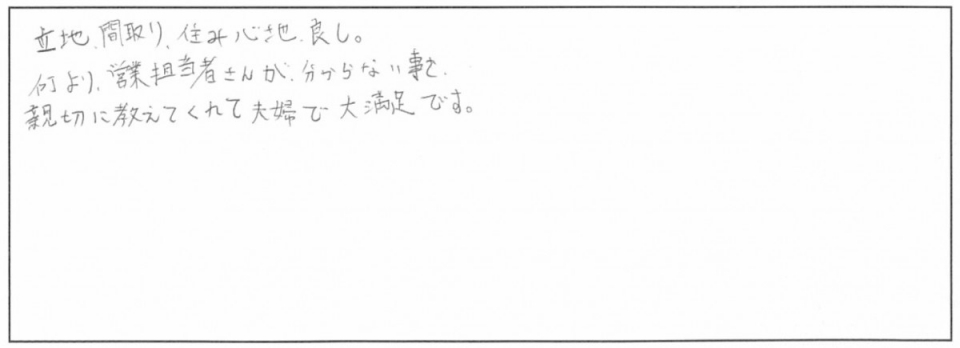 立地、間取り、住み心地、良し。
何より、営業担当者さんが、分からない事を、
親切に教えてくれて夫婦で大満足です。